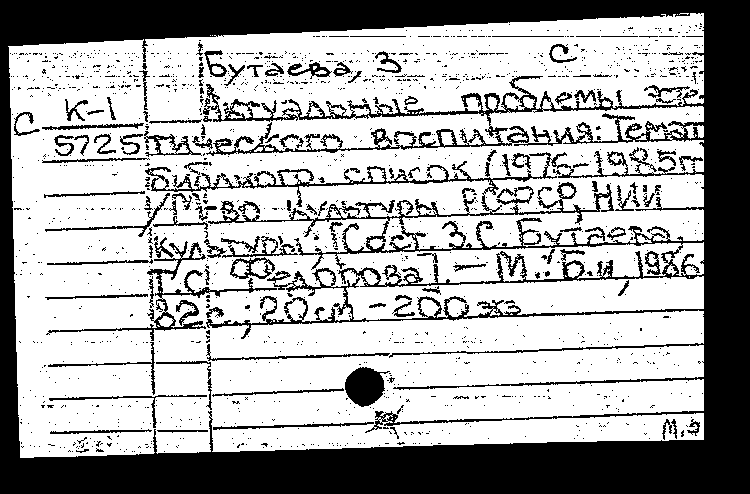 Бутаева, З С
С К-1 Актуальные проблемы эсте-
5725 тического воспитания: Темат
библиогр. список (1976-1985гг
/ М-во культуры РСФСР, НИИ
культуры; [Сост. З.С. Бутаева,
Т.С. Федорова]. — М.: Б.и, 1986-
82с.; 20см - 200 экз
М.Э